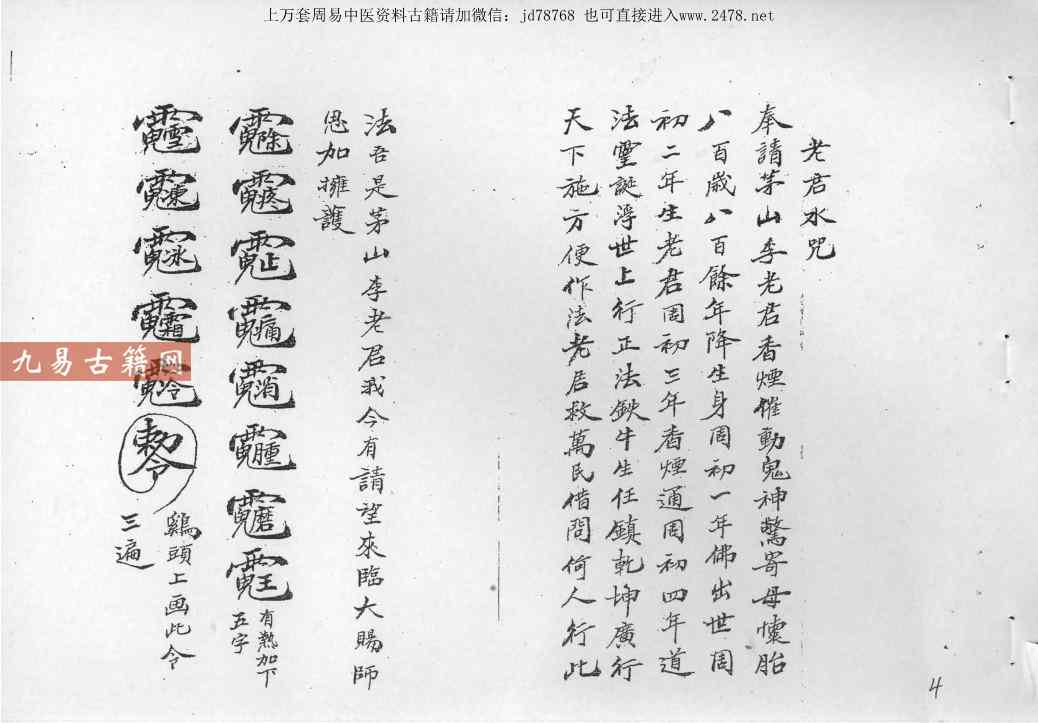 上万套周易中医资料古籍请加微信：jd78768 也可直接进入www.2478.net
老君水咒
奉請茅山李老君香煙催動鬼神驚寄母懷胎
八百歳八百餘年降生身周初一年佛出世周
初二年生老君周初三年香煙通周初四年道
法靈誕浮世上行正法鉄牛生任鎮乾坤廣行
天下施方便作法老君救萬民借問何人行此
法吾是茅山李老君我今有請望來臨大賜師
恩加擁護
有熱加下
五字
勅令
鷄頭上画此令
三遍
九易古籍网
4